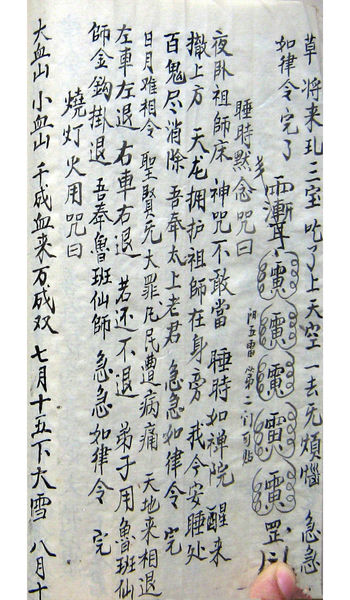 草将来乱三宝 吃了上天空一去无烦恼 急急
如律令完了
雨漸耳 靁 靁 靁 靁 靁 罡
睡時默念咒曰
夜卧祖師床 神咒不敢當 睡時如禅院 醒来
撤上方 天龙拥护祖師在身旁 我今安睡处
百鬼尽消除 吾奉太上老君 急急如律令 完
日月难相令 聖賢无大罪 凡民遭病痛 天地来相退
左車左退 右車右退 若还不退 弟子用魯班仙
師金鈎掛退 吾奉魯班仙师 急急如律令 完
烧灯火用咒曰
大血山 小血山 千成血来万成双 七月十五下大雪 八月十